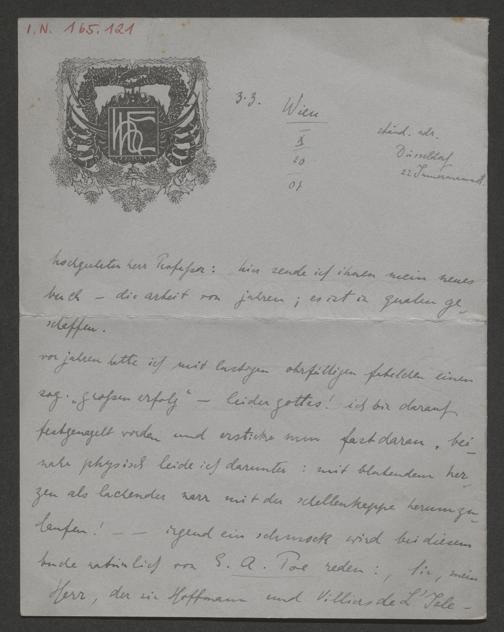 I.N. 165.121
z.Z. Wien
X
20
07
ständ. adr.
Düsseldorf
hochgeehrter herr Professor: hier sende ich ihnen mein neues
buch – die arbeit von jahren; es ist in qualen ge-
schaffen.
vor jahren hatte ich mit lustigen einen
sog. „großen erfolg" – leider gottes! ich bin darauf
festgenagelt worden und ersticke nun fast daran. bei-
nahe physisch leide ich darunter: mit blutendem her-
zen als lachender narr mit der schellenkappe herumzu-
laufen! – – irgend ein schmock wird bei diesem
buche natürlich von E. A. Poe reden: Sie, mein
Herr, der sie Hoffmann und Villiers de L'Isle-